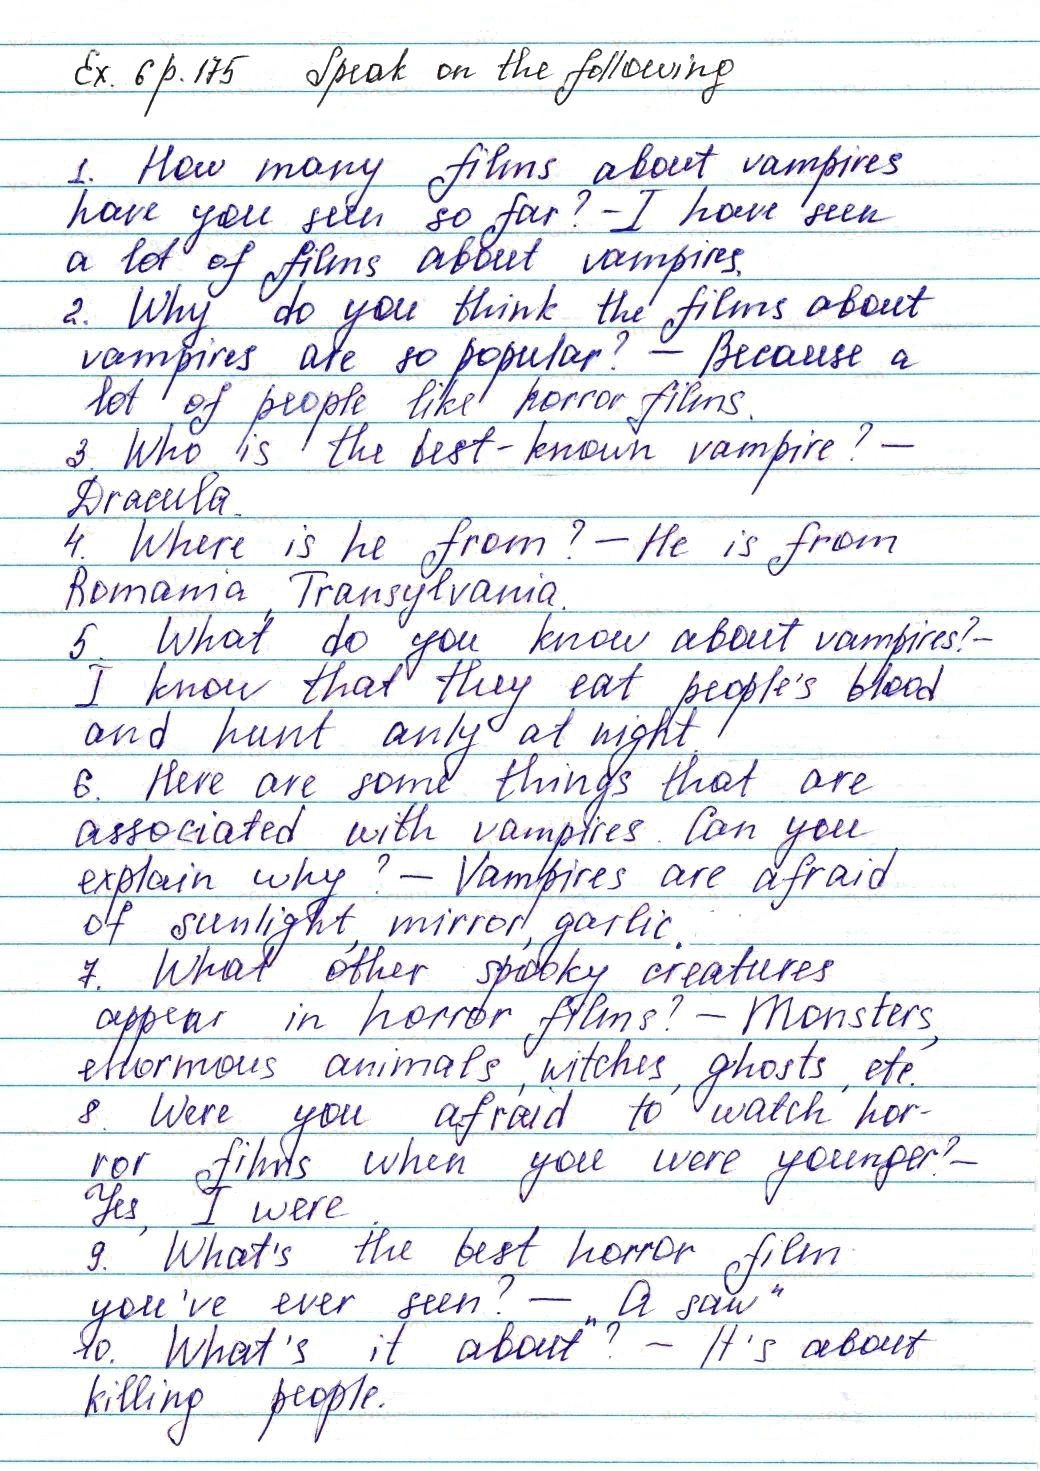 Ex. 6 p. 175 Speak on the following
1. How many films about vampires
have you seen so far? - I have seen
a lot of films about vampires.
2. Why do you think the films about
vampires are so popular? - Because a
lot of people like horror films.
3. Who is the best-known vampire? -
Dracula.
4. Where is he from? - He is from
Romania, Transylvania.
5. What do you know about vampires? -
I know that they eat people's blood
and hunt only at night.
6. Here are some things that are
associated with vampires. Can you
explain why? - Vampires are afraid
of sunlight, mirror, garlic.
7. What other spooky creatures
appear in horror films? - Monsters,
enormous animals, witches, ghosts, etc.
8. Were you afraid to watch hor-
ror films when you were younger? -
Yes, I were.
9. What's the best horror film
you've ever seen? - „A saw"
10. What's it about? - It's about
killing people.